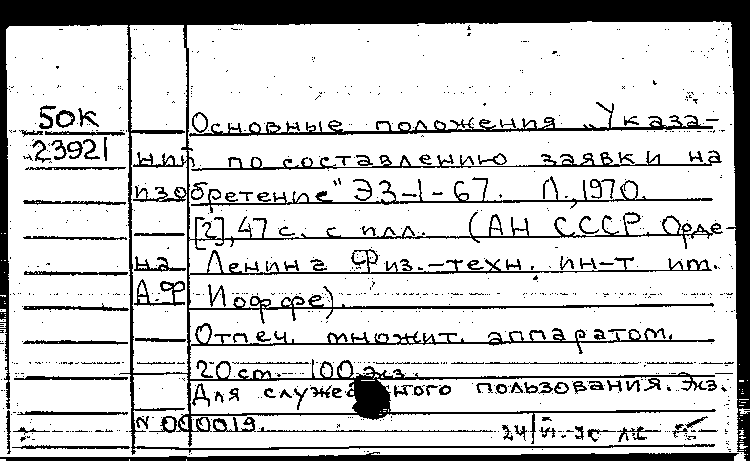 50К
23921
Основные положения „Указа-
ний по составлению заявки на
изобретение" ЭЗ-1-67. Л., 1970.
[2], 47 с. с илл. (АН СССР. Орде-
на Ленина Физ.-техн. ин-т им.
А.Ф. Иоффе).
Отпеч. множит. аппаратом.
20 ст. 100 экз.
Для служебного пользования. Экз.
N 000019.
24